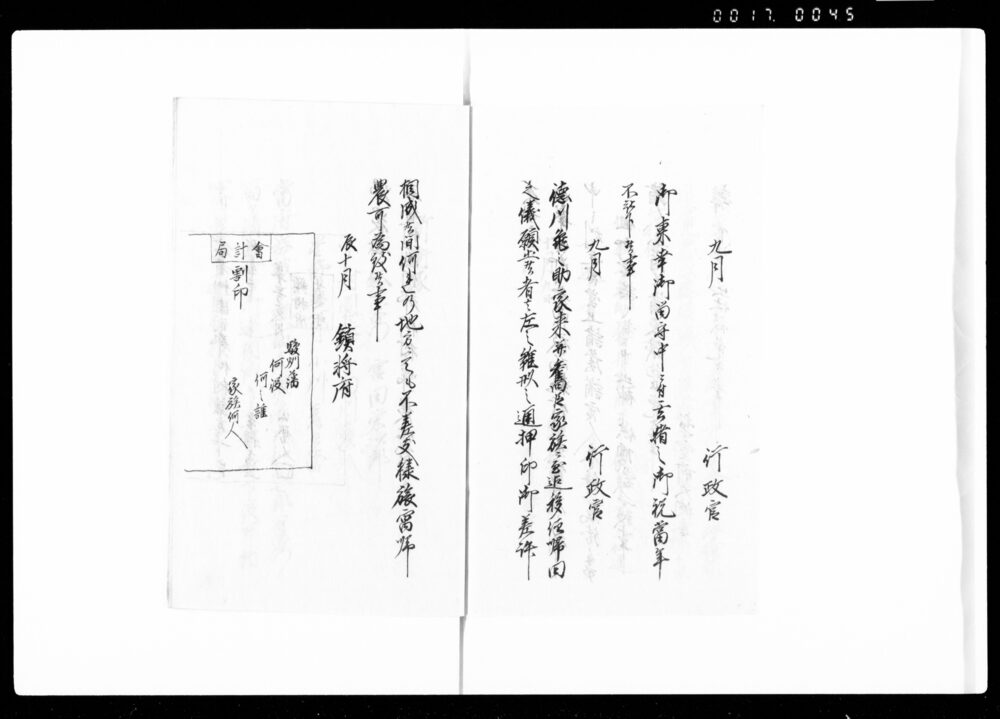 0017.0045
九月
行政官
御東幸御留守中ニ付玄猪之御祝當年
不被下候事
九月
行政官
徳川亀之助家来并舊臣家族ニ至迄移住帰田
之儀願出候者ハ左之雛形之通押印御差許
相成候間何連乃地方ニ而も不差支様旅寓帰
農可為致候事
辰十月
鎮将府
會計局
割印
駿州藩
何役
何之誰
家族何人